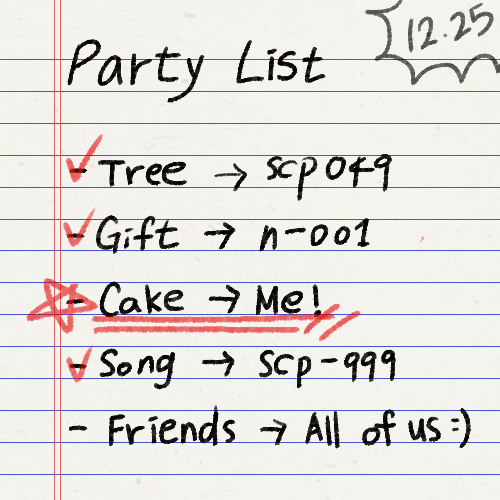 12.25
Party List
- Tree → scp049
- Gift → n-001
- Cake → Me!
- Song → Scp-999
- Friends → All of us :)